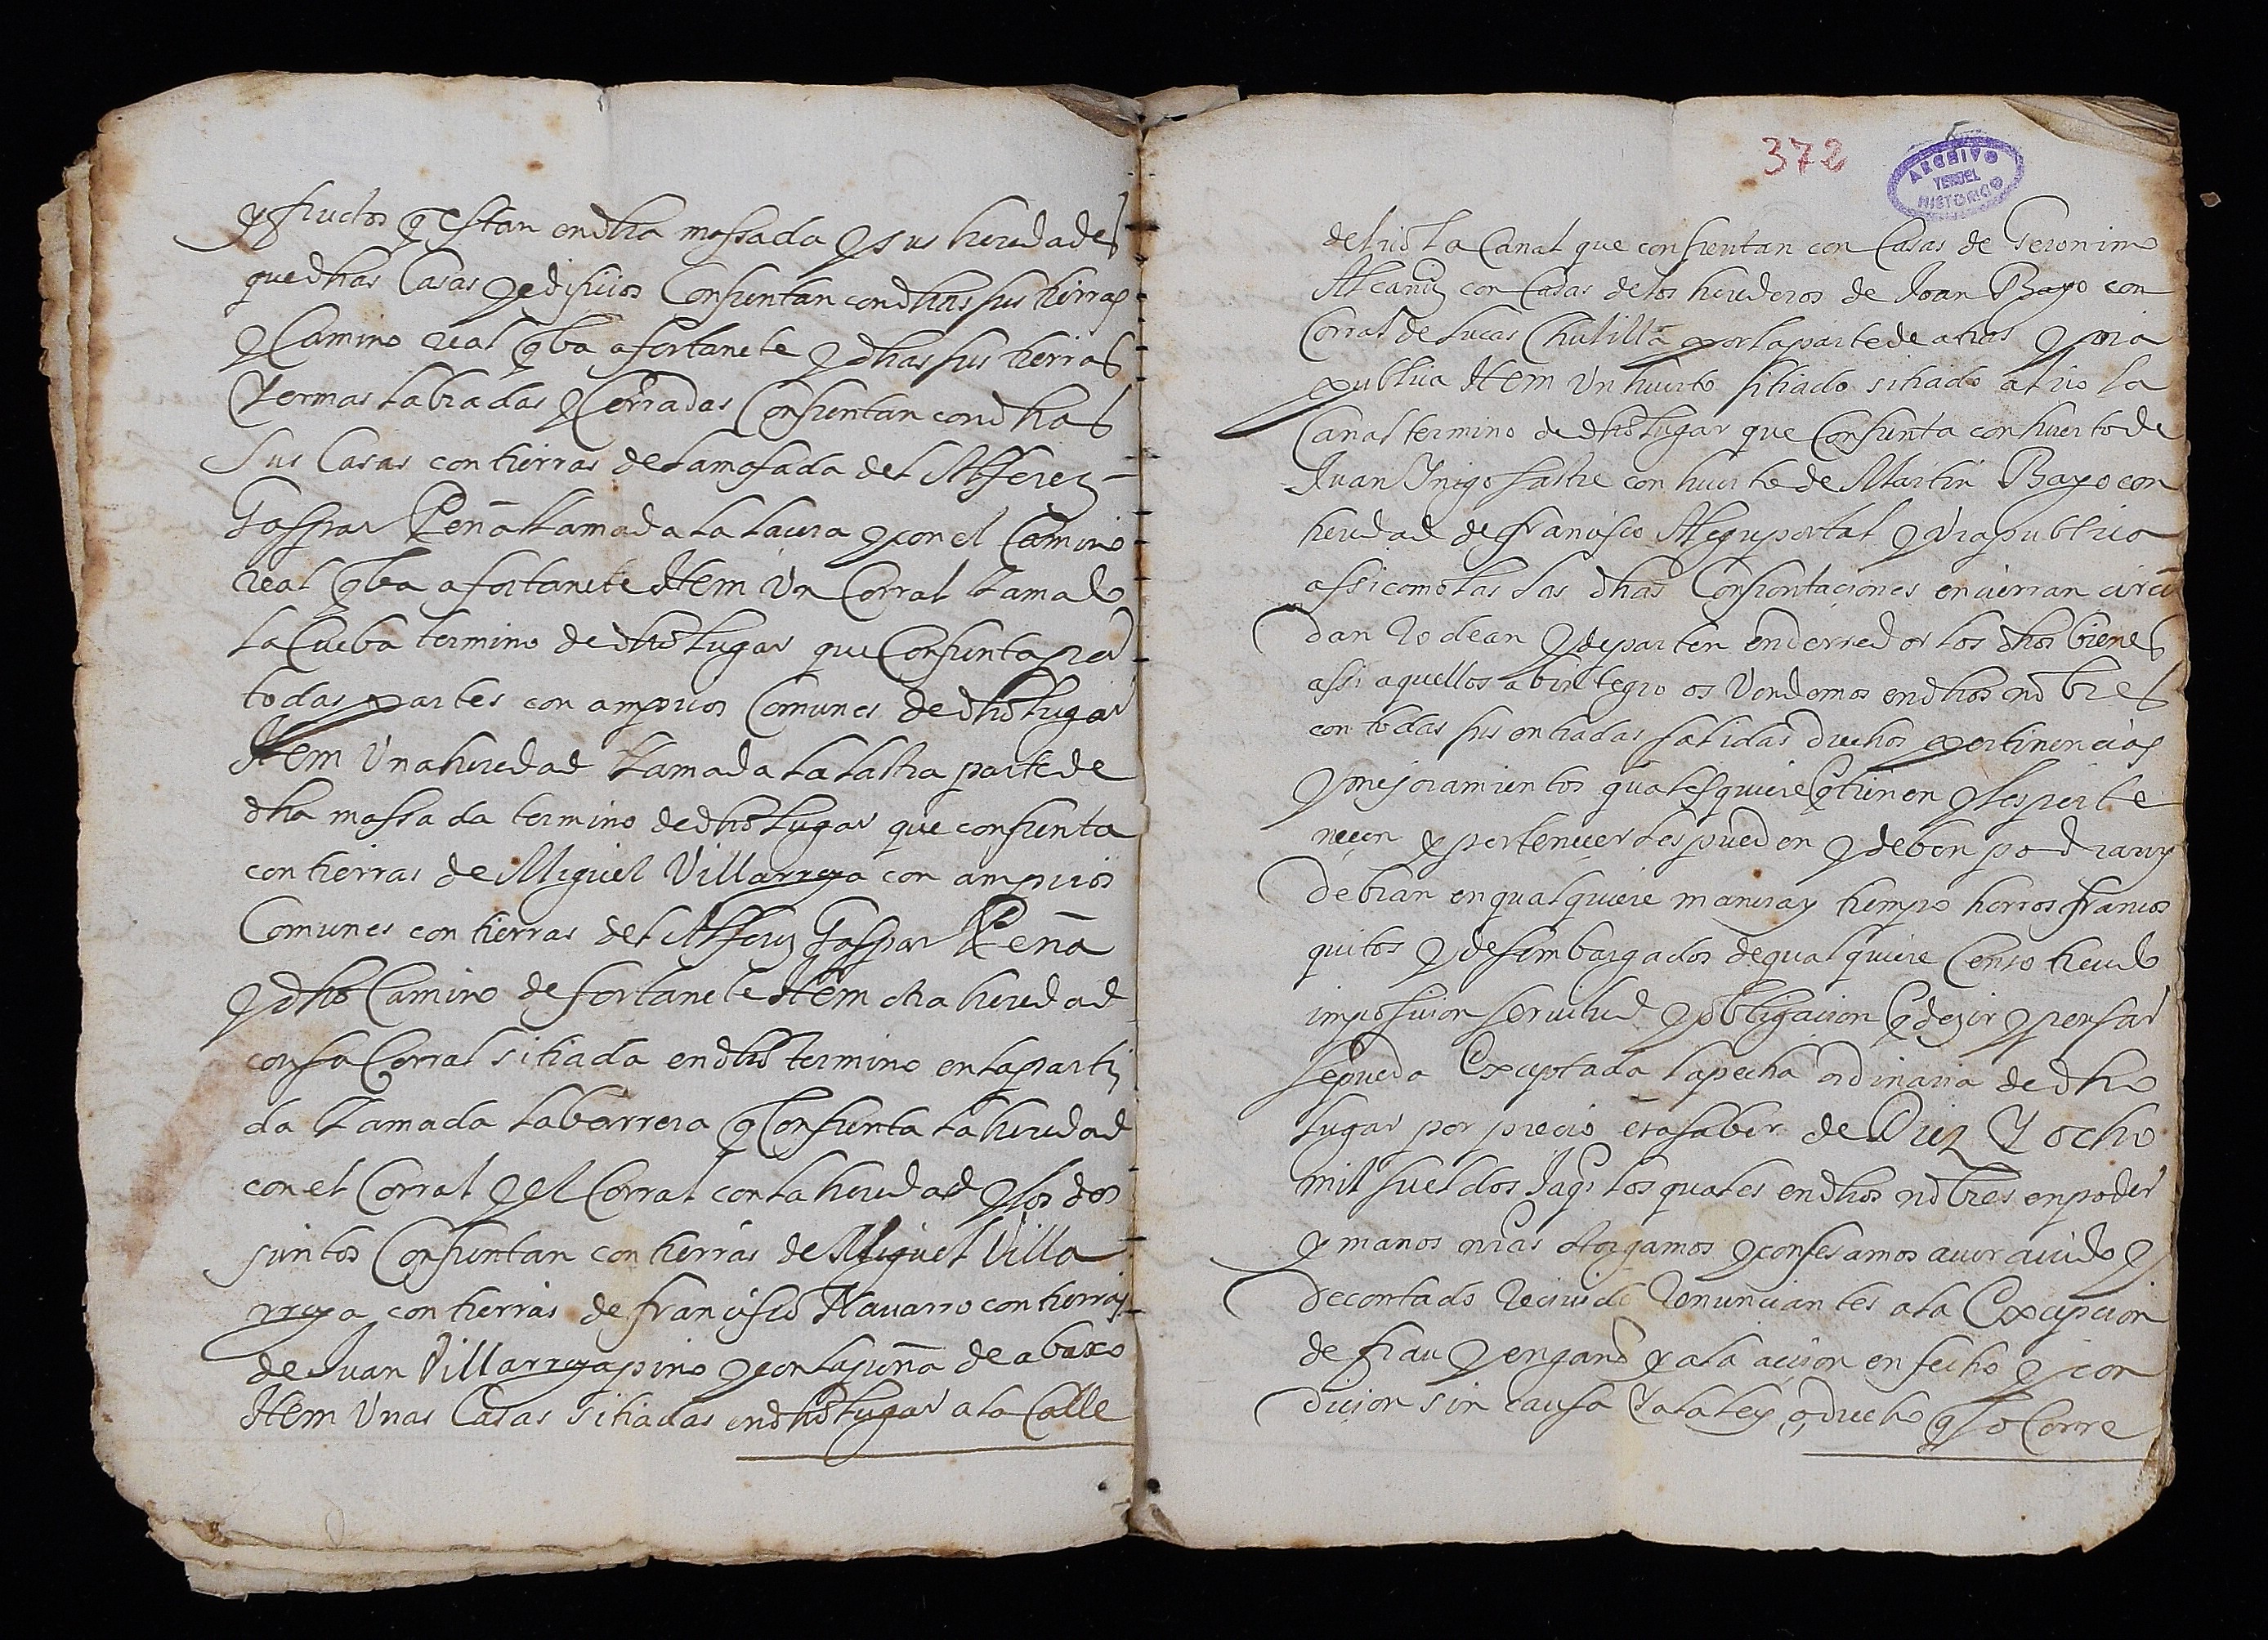 y fructos q estan en dha massada y sus heredades
que dhas Casas y edificios Confrentan con dhas sus tierras
y Camino real q ba a fortanete y dhas sus tierras
Yermas labradas y Cerradas Confrentan con dhas
sus Casas con tierras de la masada del Alferez
Gaspar Peña llamada la laura y con el Camino
real q ba a fortanete Item Un Corral llamado
la Cueba termino de dho lugar que Confrenta por
todas partes con amprios Comunes de dho lugar
Item Una heredad llamada la lastra parte de
dha massada termino de dho lugar que confrenta
con tierras de Miguel Villarroya con amprios
Comunes con tierras del Alferez Gaspar Peña
y dho Camino de fortanete Item otra heredad
con su Corral sitiada en dho termino en la parti
da llamada la barrera q Confrenta la heredad
con el Corral y el Corral con la heredad y los dos
juntos Confrentan con tierras de Miguel Villa
rroya con tierras de francisco Navarro con tierras
de Juan Villarroya pino y con la peña de abaxo
Item Unas Casas sitiadas en dho lugar a la Calle
372
5
ARCHIVO
TERUEL
HISTORICO
del rio la Canal que confrentan con Casas de Geronimo
Alcañiz con Casas de los herederos de Joan Bayo con
Corral de lucas Chulilla por la parte de atras y via
publica Item Un huerto sitiado sitiado al rio la
Canal termino de dho lugar que Confrenta con huerto de
Juan Ynigo sastre con huerto de Martin Bayo con
heredad de francisco Alegre portal y Via publica
assi como las das dhas Confrontaciones encierran circū
dan Rodean y departen enderredor los dhos bienes
assi aquellos ab integro os Vendemos en dhos nōbres
con todas sus entradas salidas drechos pertinencias
y mejoramientos quales quiere q tienen y les perte
necen y pertenecer les pueden y deben podran y
debran en qualquiere manera y tiempo horros francos
quitos y desembargados de qual quiere Censo treudo
imposicion servitud y obligacion q dezir y pensar
se pueda Exceptada la pecha ordinaria de dho
lugar por precio es a saber de Diez Y ocho
mil sueldos Jaqs los quales en dhos nōbres en poder
y manos nras otorgamos y confesamos aver avido y
de contado Recivido Renunciantes a la Excepcion
de frau y engaño y a la accion en fecho y con
dicion sin causa Y a la ley o drecho q socorre